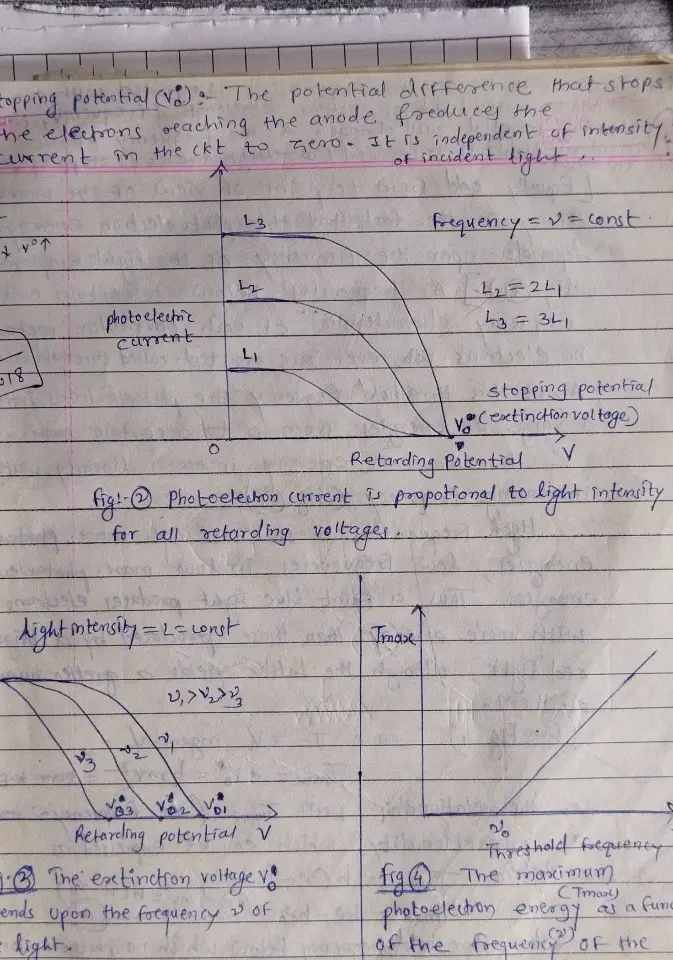 topping potential (V₀) :- The potential difference that stops
the electrons reaching the anode, & reduces the
current in the ckt to zero. It is independent of intensity
of incident light.
L3
Frequency = ν = const.
V₀↑
L2
L2 = 2L1
photoelectric
current
L3 = 3L1
L1
018
stopping potential
V₀ (exctinction voltage)
O
Retarding Potential V
fig:-② Photoelectron current is propotional to light intensity
for all retarding voltages.
Light intensity = L = const
Tmax
ν1 > ν2 > ν3
ν3 ν2 ν1
V03 V02 V01
Retarding potential V
ν₀
Threshold frequency
③ The exctinction voltage V₀
ends upon the frequency ν of
light.
fig ④ The maximum
(Tmax)
photoelectron energy as a func
of the frequency (ν) of the